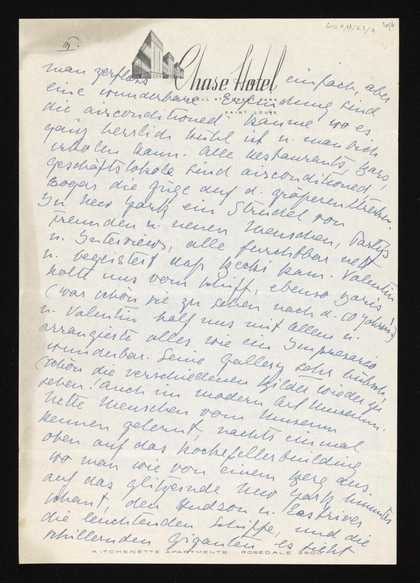 IV.
Chase Hotel
man zerfloss einfach, aber
eine wunderbare Erfindung sind
die airconditioned Räume wo es
ganz herrlich kühl ist u. man sich
erholen kann. Alle Restaurants, Bars,
Geschäftslokale sind airconditioned,
sogar die Züge auf d. größeren Strecken.
In New York ein Strudel von
Freunden u. neuen Menschen, Partys
u. Interviews, alle furchtbar nett
u. begeistert daß Becki kam. Valentin
holte uns vom Schiff, ebenso
(war schön sie zu sehen nach d. 10 Jahren)
u. Valentin half uns mit allem u.
arrangierte alles wie ein Impresario
wunderbar. Seine Gallery sehr hübsch,
schön die verschiedenen Bilder wieder zu
sehen! auch im modern Art Museum.
Nette Menschen vom Museum
kennen gelernt, nachts einmal
oben auf das Rockefellerbuilding
wo man wie von einem Berg aus
auf das glitzernde New York hinunter
schaut, den Hudson u. Eastriver
die leuchtenden Schiffe, und die
schillernden Giganten es geht
KITCHENETTE APARTMENTS ROSEDALE